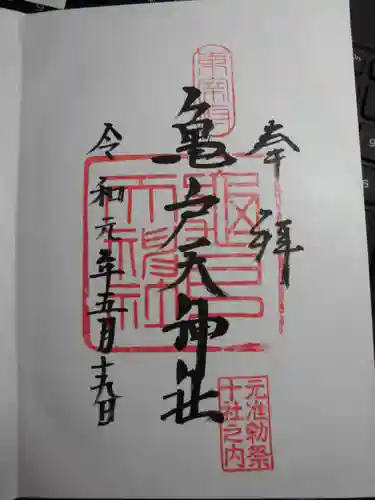 奉拝
東宰府
亀戸天神社
亀戸天神社
令和元年五月十九日
元准勅祭
十社之内